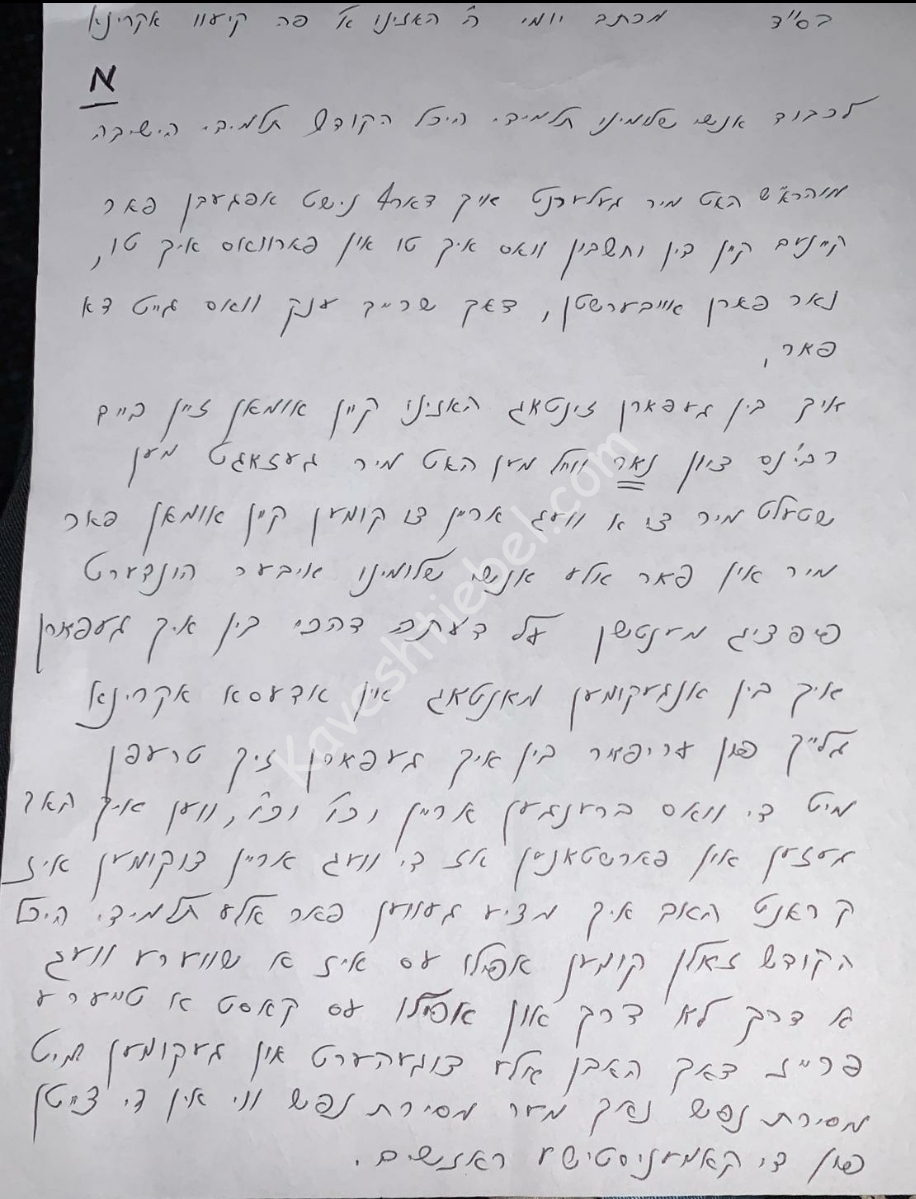 בס"ד מכתב יומי ה' האזינו א' פה קיעוו אקריינא
א
לכבוד אנשי שלומינו תלמידי היכל הקודש תלמידי הישיבה
מוהרא"ש האט מיר געלערנט איך דארף נישט אפגעבן פאר
קיינעם קיין דין וחשבון וואס איך טו אין פארוואס איך טו,
נאר פארן אייבערשטן, דאך שרייב ענק וואס גייט דא
פאר,
איך בין געפארן זינטאג האזינו קיין אומאן זיין ביים
רבי'נס ציון נאר ווייל מען האט מיר געזאגט מען
שטעלט מיר צו א וועג אריין צו קומען קיין אומאן פאר
מיר אין פאר אלע אנשי שלומינו איבער הונדערט
פיפציג מענטשן על דעתה דהכי בין איך געפארן
איך בין אנגעקומען מאנטאג אין אדעסא אקריינא
גלייך פון ערפאר בין איך געפארן זיך טרעפן
מיט די וואס ברענגען אריין וכו' וכו', ווען איך האב
געזען אין פארשטאנין אז די וועג אריין צוקומען איז
קראנט האב איך מציע געווען פאר אלע תלמידי היכל
הקודש זאלן קומען אפילו עס איז א שווערע וועג
א דרך לא דרך און אפילו עס קאסט א טייערע
פרייז דאך האבן אלע צוגעהערט אין געקומען מיט
מסירת נפש נאך מער מסירת נפש ווי אין די צייטן
פון די קאמעניסטישע ראזשים.
Kaveshtiebel.com